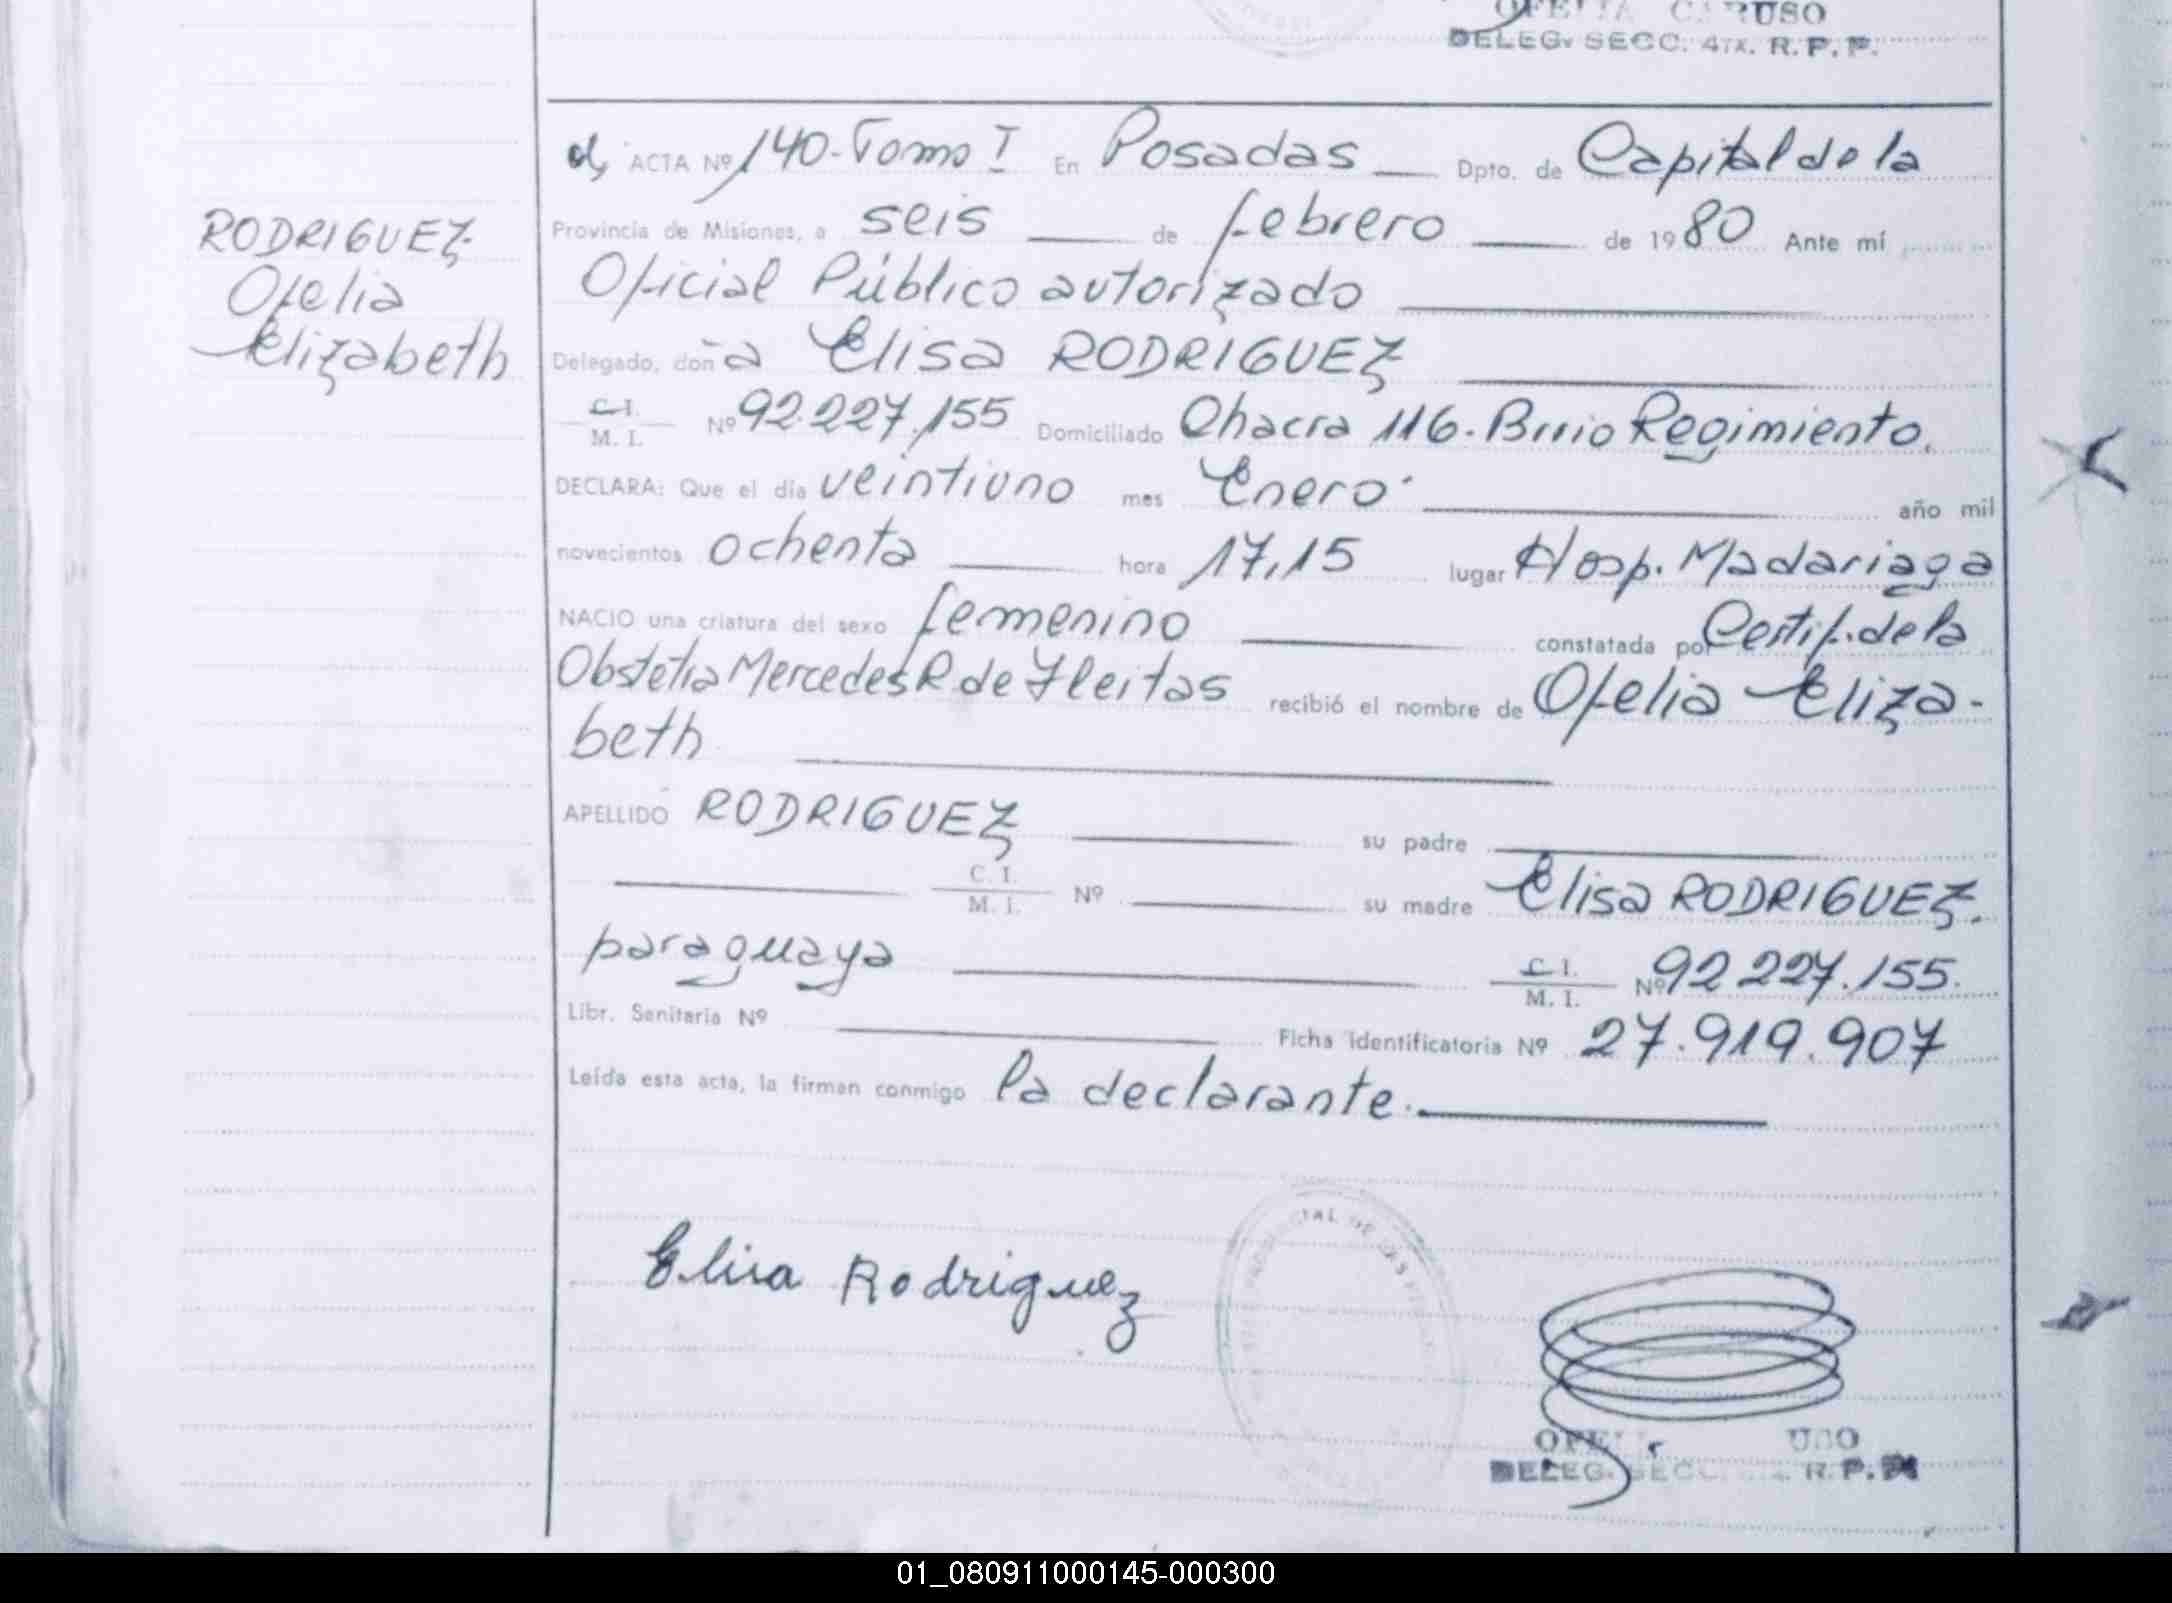 OFELIA CARUSO
DELEG. SECC. 4TA. R. P. P.
d, ACTA Nº 140-Tomo I En Posadas Dpto. de Capital de la
Provincia de Misiones, a seis de febrero de 1980 Ante mí
Oficial Público autorizado
Delegado, doña Elisa RODRIGUEZ
C. I.
M. I. Nº 92.227.155 Domiciliado Chacra 116. Brrio Regimiento.
DECLARA: Que el día veintiuno mes Enero año mil
novecientos ochenta hora 17,15 lugar Hosp. Madariaga
NACIO una criatura del sexo femenino constatada por Certif. de la
Obstetia Mercedes R. de Fleitas recibió el nombre de Ofelia Eliza-
beth
APELLIDO RODRIGUEZ su padre
C. I.
M. I. Nº su madre Elisa RODRIGUEZ.
paraguaya C. I.
M. I. Nº 92 227.155.
Libr. Sanitaria Nº Ficha identificatoria Nº 27.919.907
Leída esta acta, la firman conmigo la declarante.
RODRIGUEZ
Ofelia
Elizabeth
Elisa Rodriguez
DELEG. R. P.
01_080911000145-000300